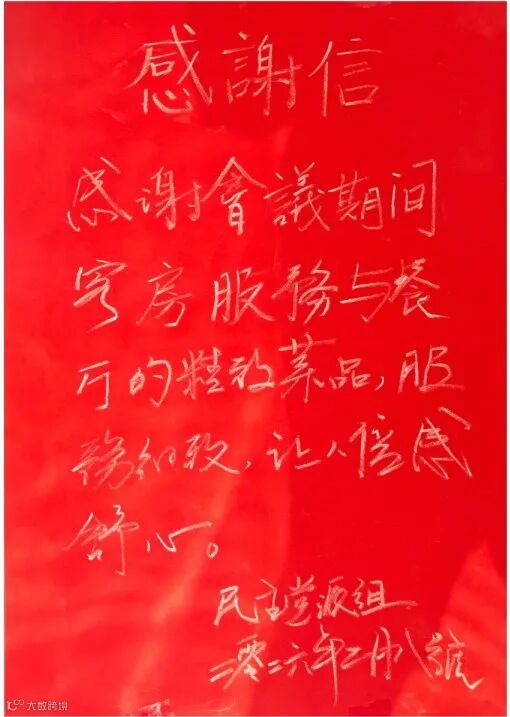 感謝信
感谢會議期间
客房服務与餐
厅的精致菜品,服
務细致,让人倍感
舒心。
民主党派组
二零二六年二月八號
10100 大数跨境